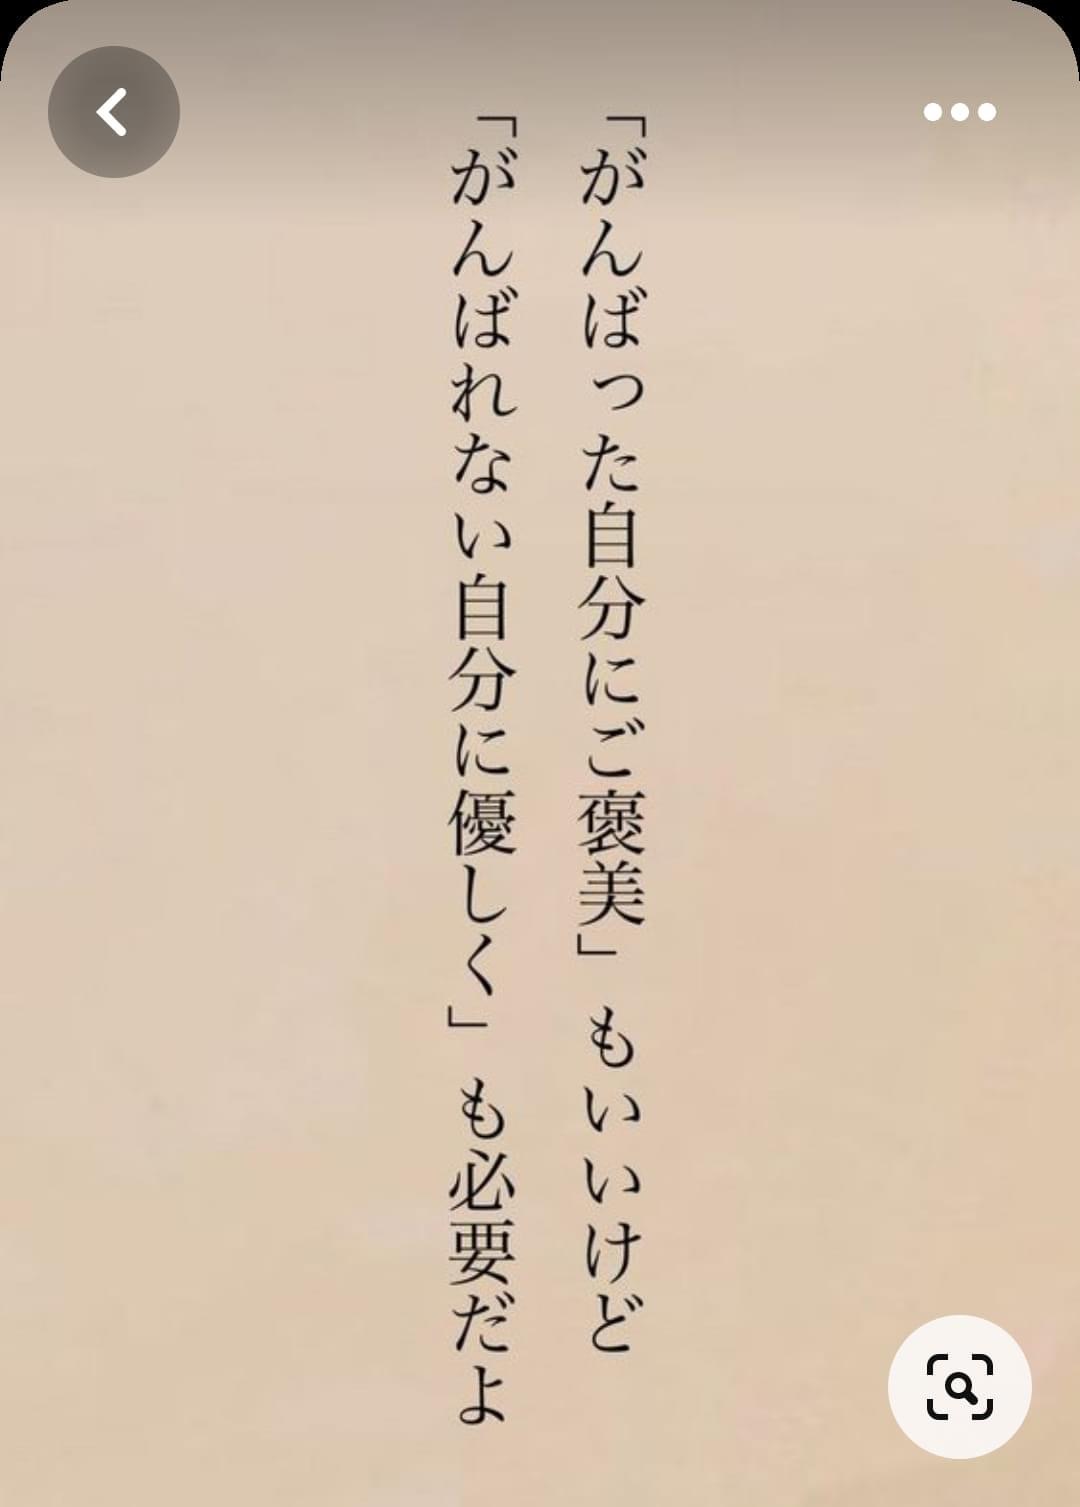 「がんばった自分にご褒美」もいいけど
「がんばれない自分に優しく」も必要だよ